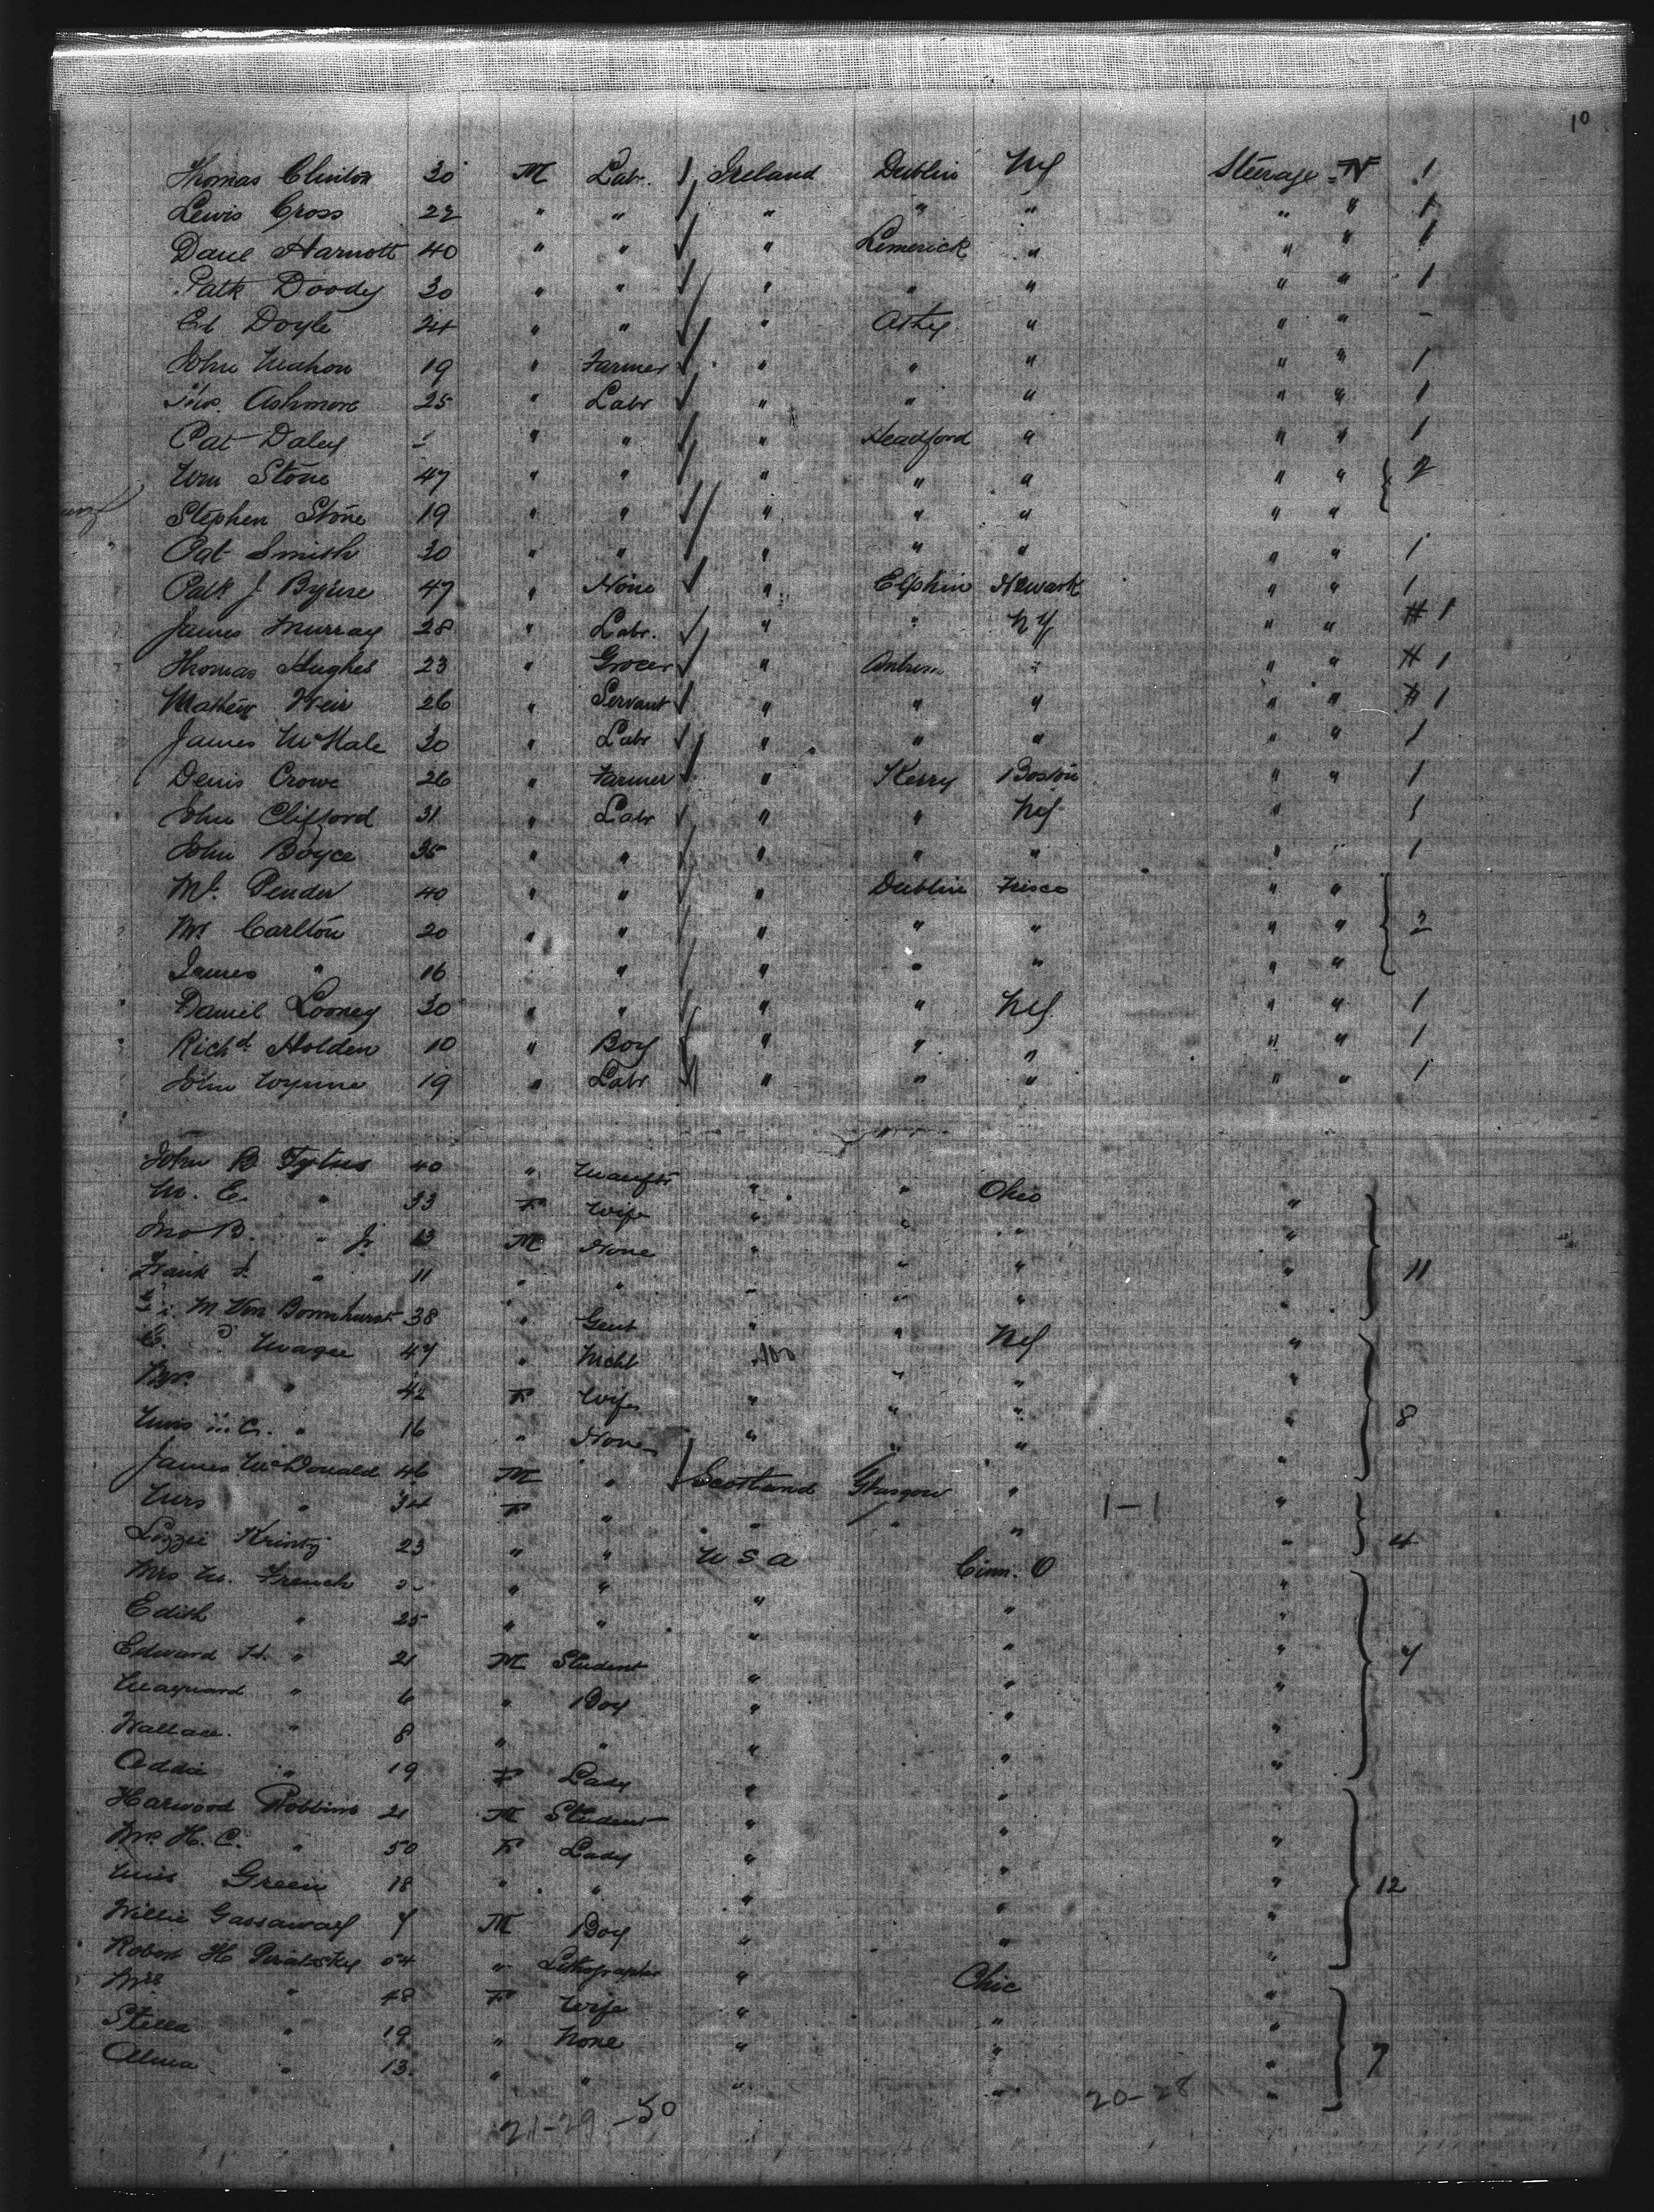 10
Thomas Clinton 30 M Labr. Ireland Dublin NY Steerage N 1
Lewis Cross 22 " " " " " " " 1
Danl Harnott 40 " " " Limerick " " " 1
Patk Doody 30 " " " " " " " 1
Ed Doyle 24 " " " Athy " " " -
John Mahon 19 " Farmer " " " " " 1
Ashmore 25 " Labr " " " " " 1
Pat Daley " " " Headford " " " 1
Wm Stone 47 " " " " " " " 2
Stephen Stone 19 " " " " " " "
Pat Smith 30 " " " " " " " 1
Patk J Byrne 47 " None " Elphin Newark " " 1
James Murray 28 " Labr. " " NY " " # 1
Thomas Hughes 23 " Grocer " Antrim " " " # 1
Mathew Weir 26 " Servant " " " " " # 1
James McHale 30 " Labr " " " " " 1
Denis Crowe 26 " Farmer " Kerry Boston " " 1
John Clifford 31 " Labr " " NY " 1
John Boyce 35 " " " " " " " 1
Ml. Pender 40 " " " Dublin Frisco " "
Mr Carlton 20 " " " " " " " 2
James " 16 " " " " " "
Daniel Looney 30 " " " " NY " " 1
Richd. Holden 10 " Boy " " " " " 1
John Wynne 19 " Labr " " " " " 1
John B Tytus 40 " Manftr " " Ohio "
M. E. " 33 F Wife " " " "
Jno B. " Jr 13 M None " " " " 11
Frank J. " 11 " " " " "
M Von Bornhurst 38 " Gent " " NY "
Magee 47 " Mcht 100 " " "
Mrs. " 42 F Wife " " " " 8
Miss C. " 16 " None " " " "
James McDonald 46 M " Scotland Glasgow " "
Mrs " 34 F " " " " 1-1 "
Lizzie 23 " " U S A Cinn. O " 4
Mrs M. French " " " " "
Edith " 25 " " " " "
Edward H. " 21 M Student " " " 7
Maynard " 6 " Boy " " "
Wallace. " 8 " " " " "
Addie " 19 F Lady " "
Harwood Robbins 21 M Student " " "
Mrs. H. C. " 50 F Lady " " "
Miss Green 18 " " " " " 12
Willie Gassaway 7 M Boy " " "
Robert H 54 " Lithographer " Ohio "
Mrs " 48 F Wife " " "
Stella " 19 " None " " " 7
Alma " 13. " " " " "
21-29 -50 20-28